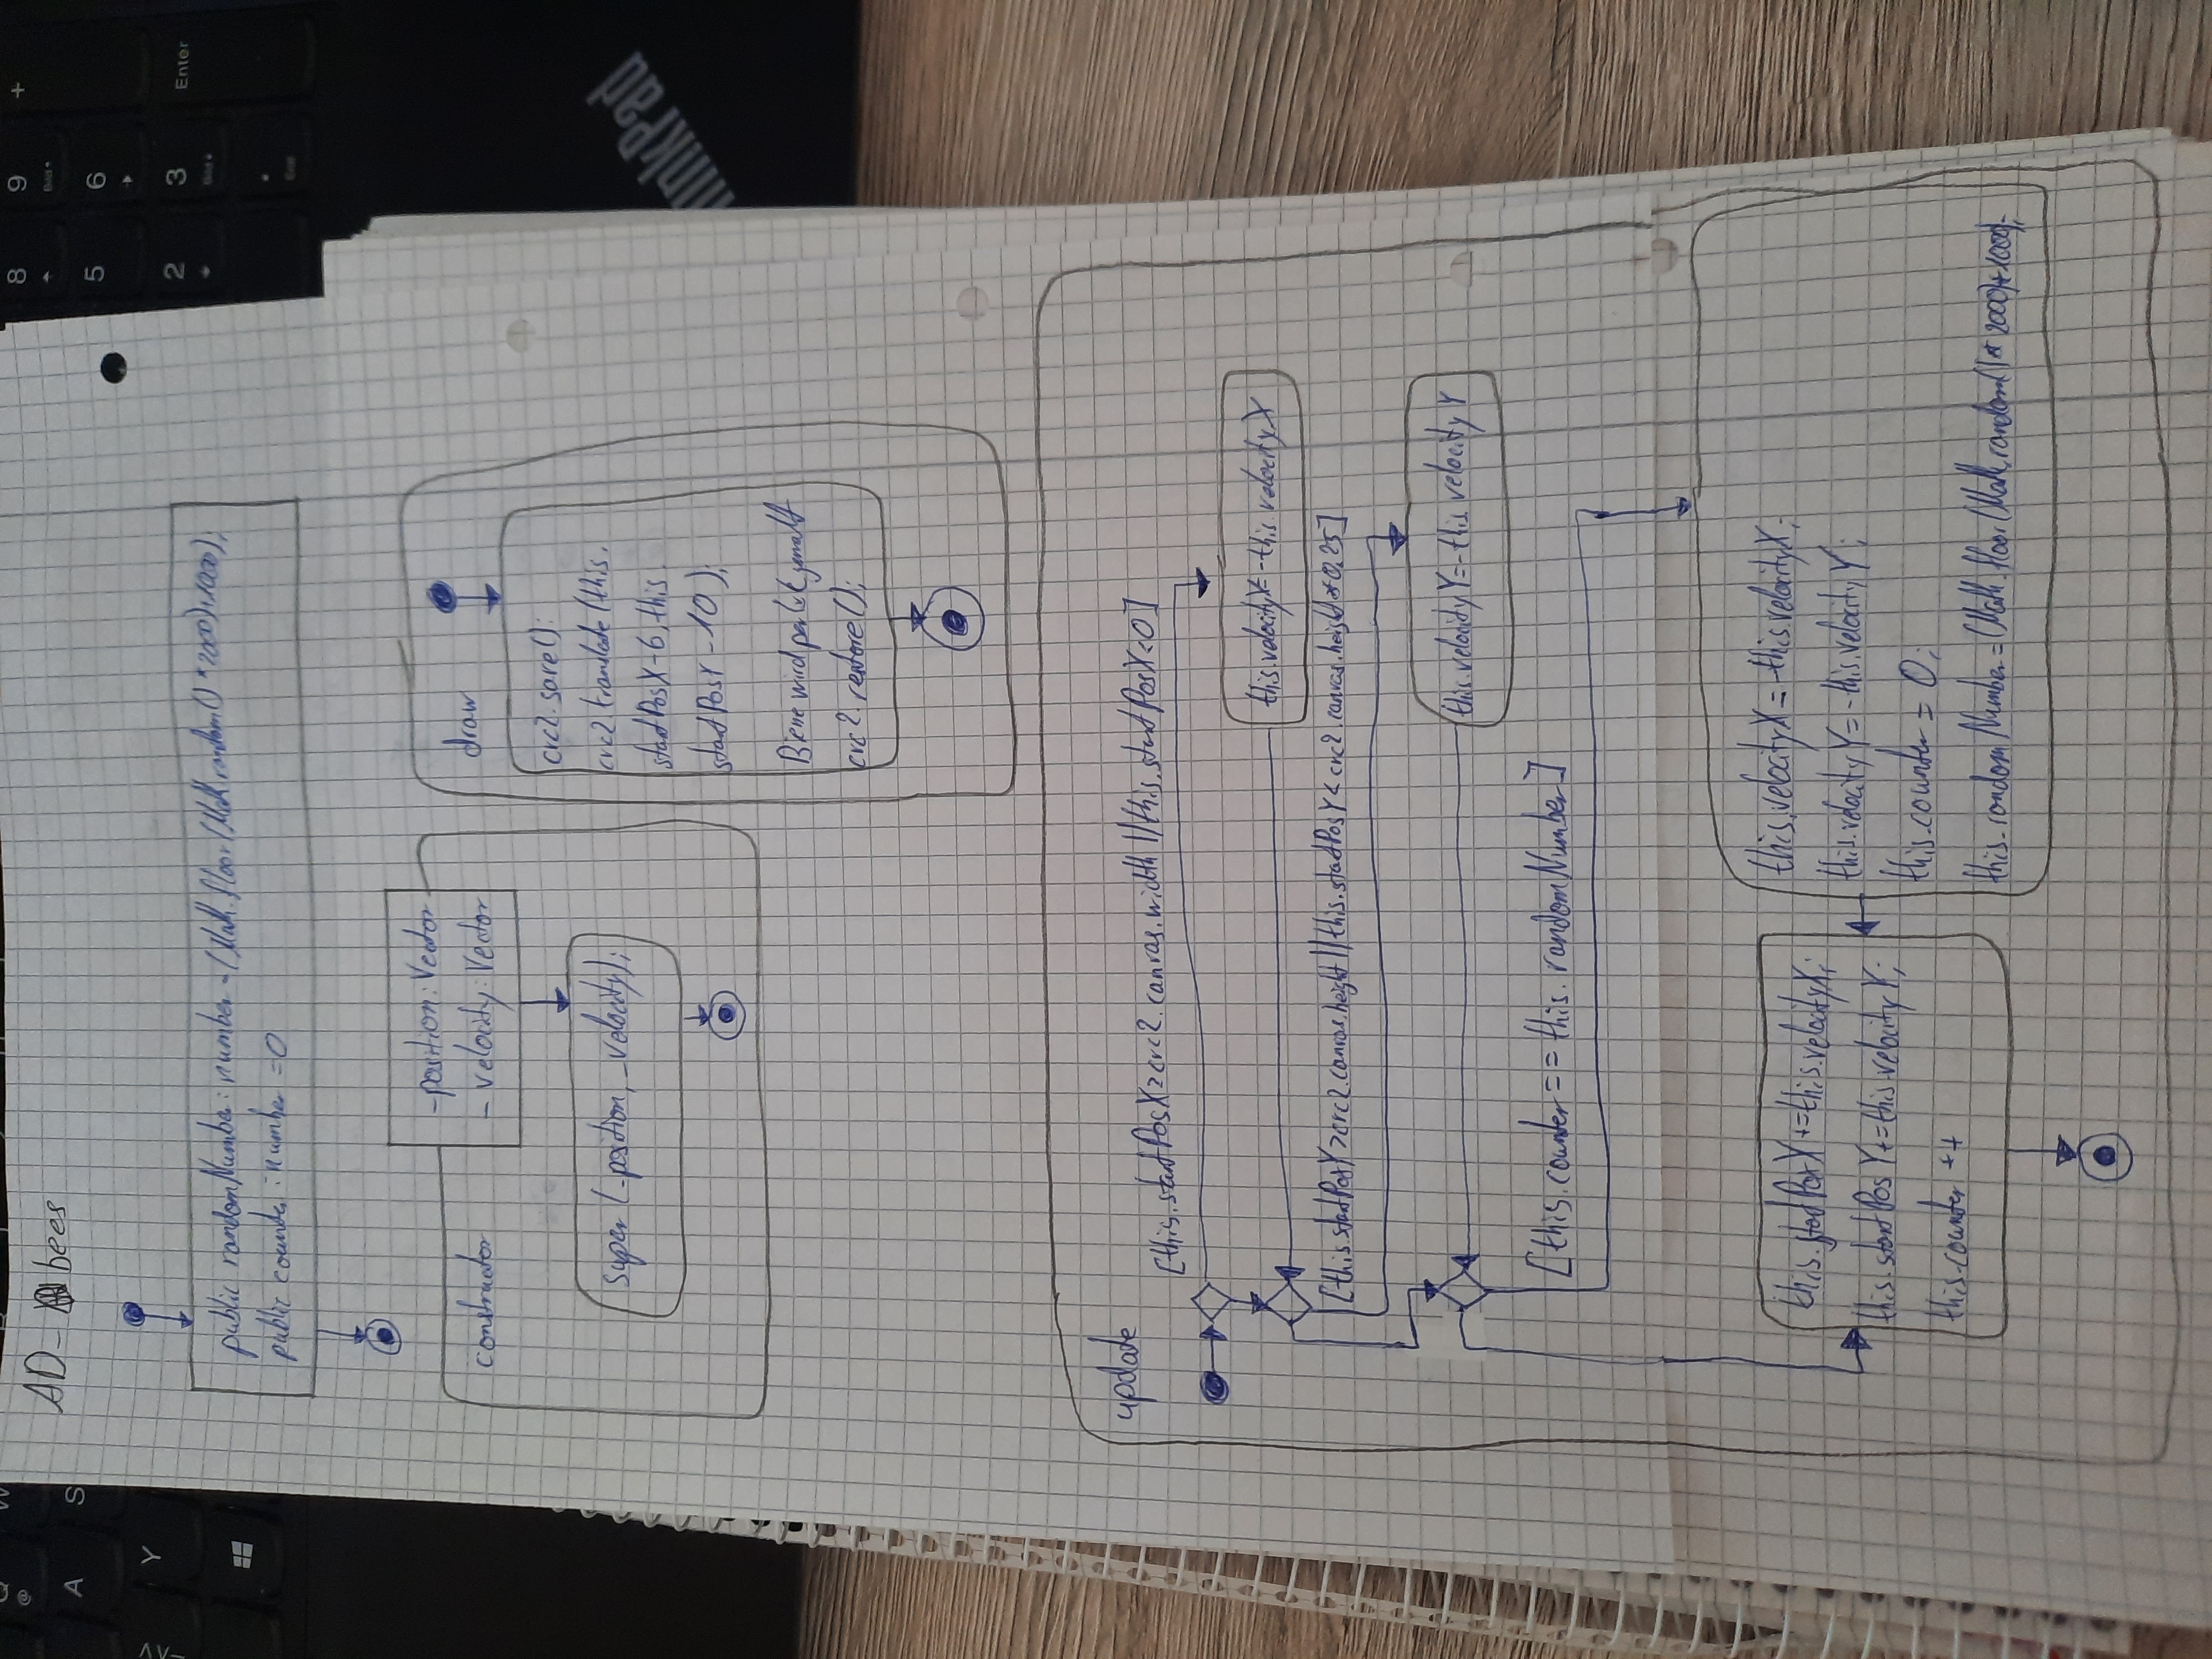 AD- bees
public randomNumber: number = (Math.floor(Math.random() * 2000)+1000);
public counter: number = 0
-position: Vector
- velocity: Vector
constructor
super (-position, -velocity);
draw
crc2.save();
crc2.translate(this.
startPosX-6, this.
startPosY-10);
Biene wird per gemalt
crc2.restore();
update
[this.startPosX>crc2.canvas.width || this.startPosX<0]
this.velocityX=-this.velocityX
[this.startPosY>crc2.canvas.height || this.startPosY < crc2.canvas.height*0,25]
this.velocityY=-this.velocityY
[this.counter==this.randomNumber]
this.startPosX+=this.velocityX;
this.startPosY+=this.velocityY;
this.counter ++
this.velocityX=-this.velocityX;
this.velocityY=-this.velocityY;
this.counter = 0;
this.randomNumber=(Math.floor(Math.random()* 2000)+1000);
8
9
+
Bild
5
6
2
3
Enter
Bild
End
Q
@
W
A
S
Y
>
<
ThinkPad